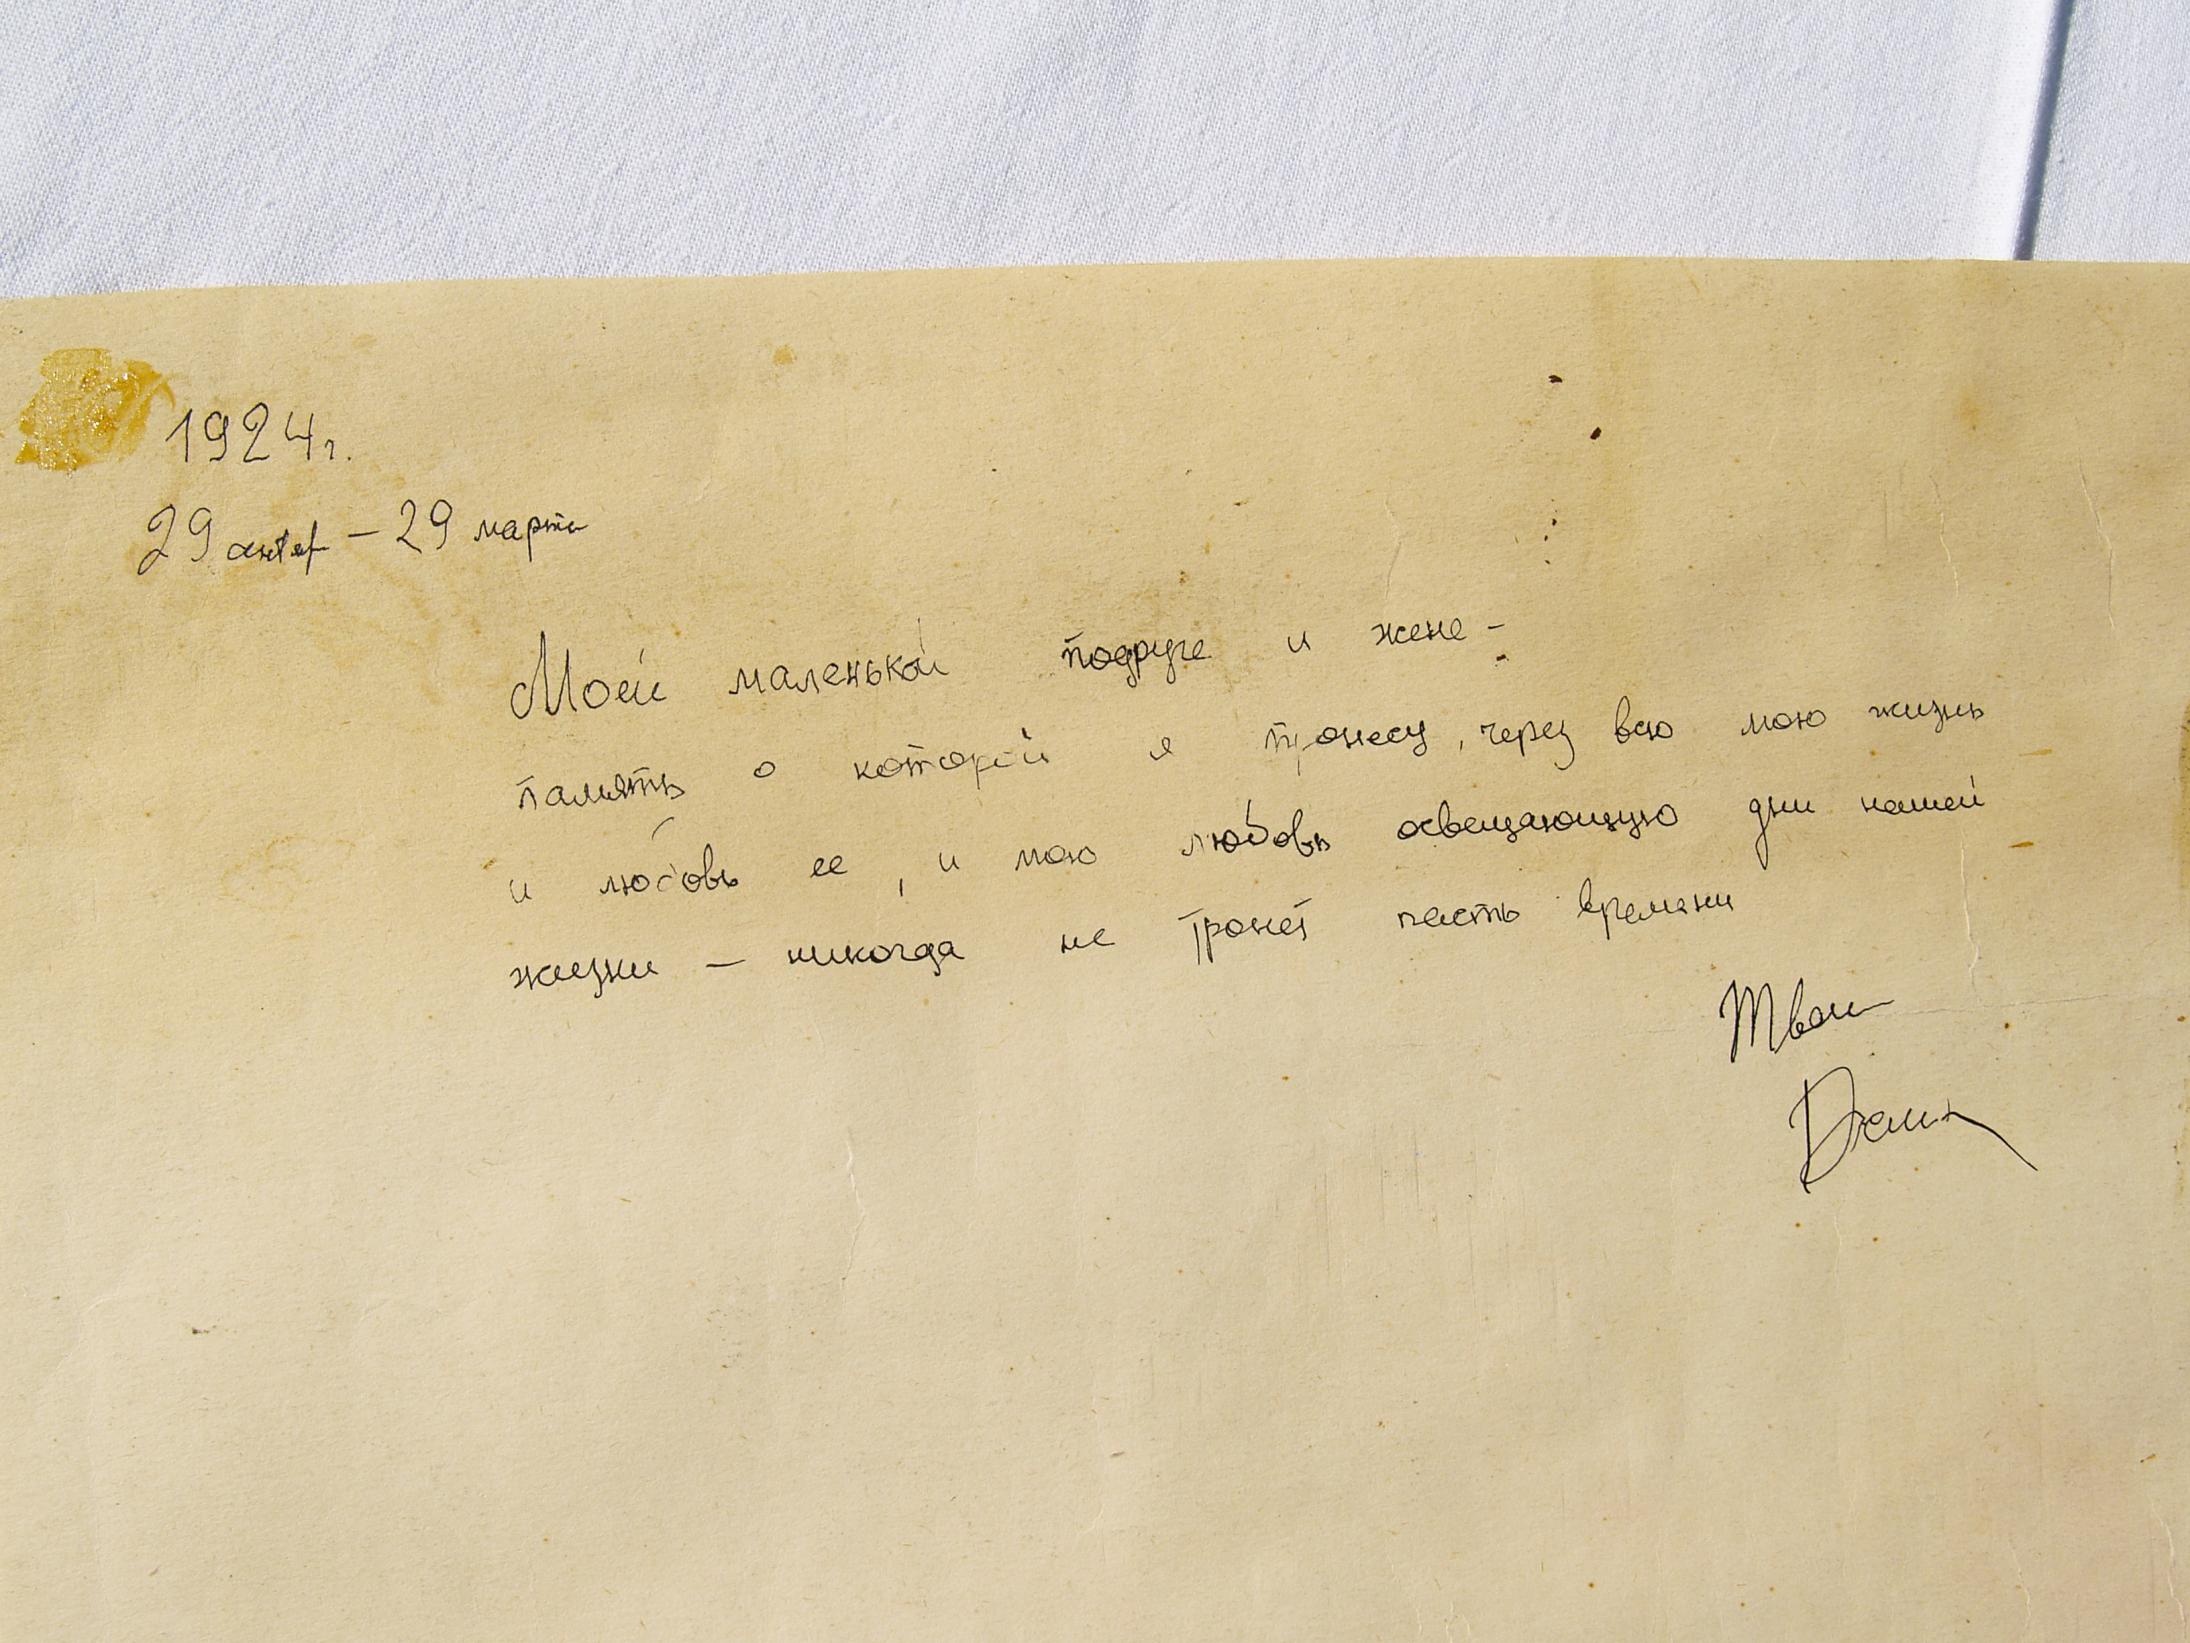 1924г.
29 – 29 марта
Моей маленькой подруге и жене –
память о которой я пронесу, через всю мою жизнь
и любовь ее, и мою любовь освещающую дни нашей
жизни – никогда не тронет пасть времени
Твой